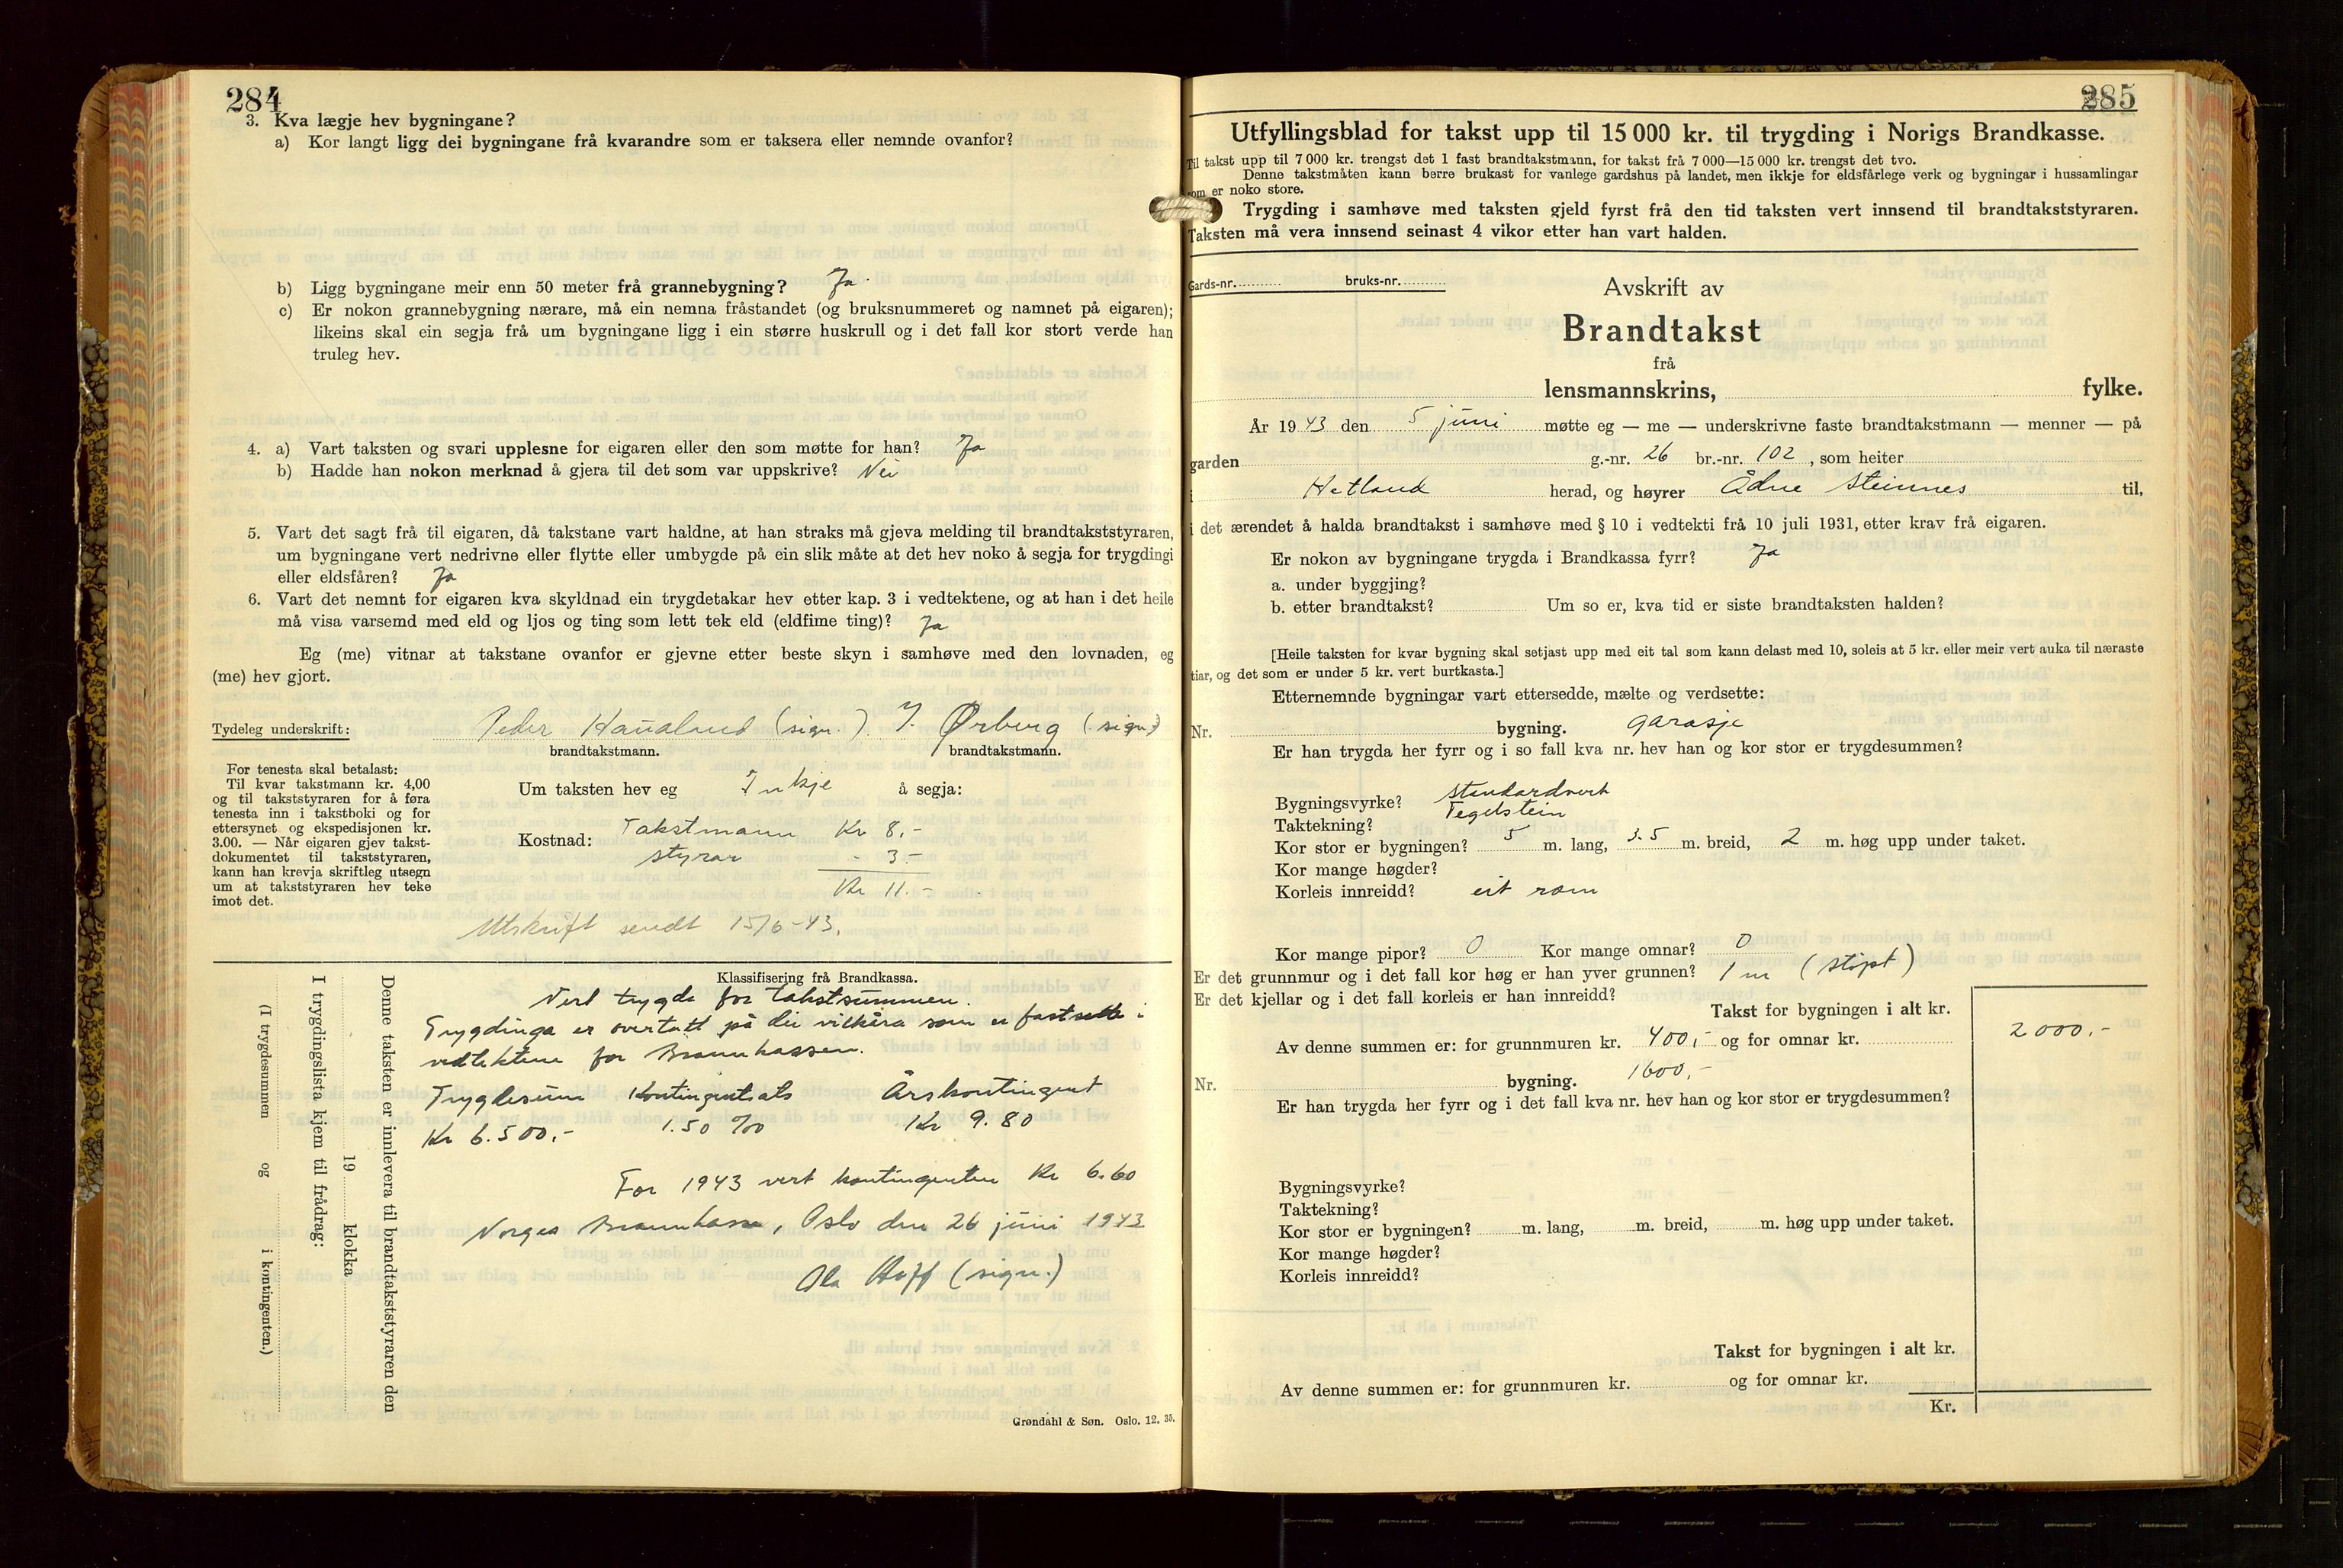 284
3. Kva lægje hev bygningane?
a) Kor langt ligg dei bygningane frå kvarandre som er taksera eller nemnde ovanfor?
b) Ligg bygningane meir enn 50 meter frå grannebygning? Ja
c) Er nokon grannebygning nærare, må ein nemna fråstandet (og bruksnummeret og namnet på eigaren);
likeins skal ein segja frå um bygningane ligg i ein større huskrull og i det fall kor stort verde han
truleg hev.
4. a) Vart taksten og svari upplesne for eigaren eller den som møtte for han? Ja
b) Hadde han nokon merknad å gjera til det som var uppskrive? Nei
5. Vart det sagt frå til eigaren, då takstane vart haldne, at han straks må gjeva melding til brandtakststyraren,
um bygningane vert nedrivne eller flytte eller umbygde på ein slik måte at det hev noko å segja for trygdingi
eller eldsfåren? Ja
6. Vart det nemnt for eigaren kva skyldnad ein trygdetakar hev etter kap. 3 i vedtektene, og at han i det heile
må visa varsemd med eld og ljos og ting som lett tek eld (eldfime ting)? Ja
Eg (me) vitnar at takstane ovanfor er gjevne etter beste skyn i samhøve med den lovnaden, eg
(me) hev gjort.
Tydeleg underskrift: Peder Haualand (sign.) J. Ørberg (sign)
brandtakstmann. brandtakstmann.
For tenesta skal betalast:
Til kvar takstmann kr. 4,00
og til takststyraren for å føra
tenesta inn i takstboki og for
ettersynet og ekspedisjonen kr.
3.00. — Når eigaren gjev takst-
dokumentet til takststyraren,
kann han krevja skriftleg utsegn
um at takststyraren hev teke
imot det.
Um taksten hev eg Inkje å segja:
Kostnad: Takstmann Kr 8.-
styrar - 3.-
Kr 11.-
Utskrift sendt 15/6-43.
Klassifisering frå Brandkassa.
Vert trygda for takstsummen.
Trygdinga er overtatt på dei vilkåra som er fastsette i
vedtektene for Brannkassen.
Trygdesum Kontingentsats Årskontingent
Kr 6.500.- 1.50 ‰ Kr 9.80
For 1943 vert kontingenten Kr 6.60
Norges Brannkasse, Oslo den 26 juni 1943
Ola Hoff (sign.)
Denne taksten er innlevera til brandtakststyraren den
19 klokka
I trygdingslista kjem til frådrag:
(I trygdesummen og i kontingenten.)
Grøndahl & Søn. Oslo. 12. 35.
285
Utfyllingsblad for takst upp til 15 000 kr. til trygding i Norigs Brandkasse.
Til takst upp til 7 000 kr. trengst det 1 fast brandtakstmann, for takst frå 7 000—15 000 kr. trengst det tvo.
Denne takstmåten kann berre brukast for vanlege gardshus på landet, men ikkje for eldsfårlege verk og bygningar i hussamlingar
som er noko store.
Trygding i samhøve med taksten gjeld fyrst frå den tid taksten vert innsend til brandtakststyraren.
Taksten må vera innsend seinast 4 vikor etter han vart halden.
Gards-nr. bruks-nr.
Avskrift av
Brandtakst
frå
lensmannskrins, fylke.
År 1943 den 5 juni møtte eg — me — underskrivne faste brandtakstmann — menner — på
garden g.-nr. 26 br.-nr. 102, som heiter
i Hetland herad, og høyrer Ådne Steinnes til,
i det ærendet å halda brandtakst i samhøve med § 10 i vedtekti frå 10 juli 1931, etter krav frå eigaren.
Er nokon av bygningane trygda i Brandkassa fyrr? Ja
a. under byggjing?
b. etter brandtakst? Um so er, kva tid er siste brandtaksten halden?
[Heile taksten for kvar bygning skal setjast upp med eit tal som kann delast med 10, soleis at 5 kr. eller meir vert auka til næraste
tiar, og det som er under 5 kr. vert burtkasta.]
Etternemnde bygningar vart ettersedde, mælte og verdsette:
Nr. bygning. garasje
Er han trygda her fyrr og i so fall kva nr. hev han og kor stor er trygdesummen?
Bygningsvyrke? standardverk
Taktekning? Tegelstein
Kor stor er bygningen? 5 m. lang, 3.5 m. breid, 2 m. høg upp under taket.
Kor mange høgder?
Korleis innreidd? eit rom
Kor mange pipor? 0 Kor mange omnar? 0
Er det grunnmur og i det fall kor høg er han yver grunnen? 1 m (støpt)
Er det kjellar og i det fall korleis er han innreidd?
Takst for bygningen i alt kr. 2000.-
Av denne summen er: for grunnmuren kr. 400,- og for omnar kr.
1600,-
Nr. bygning.
Er han trygda her fyrr og i det fall kva nr. hev han og kor stor er trygdesummen?
Bygningsvyrke?
Taktekning?
Kor stor er bygningen? m. lang, m. breid, m. høg upp under taket.
Kor mange høgder?
Korleis innreidd?
Takst for bygningen i alt kr.
Av denne summen er: for grunnmuren kr. og for omnar kr.
Kr.